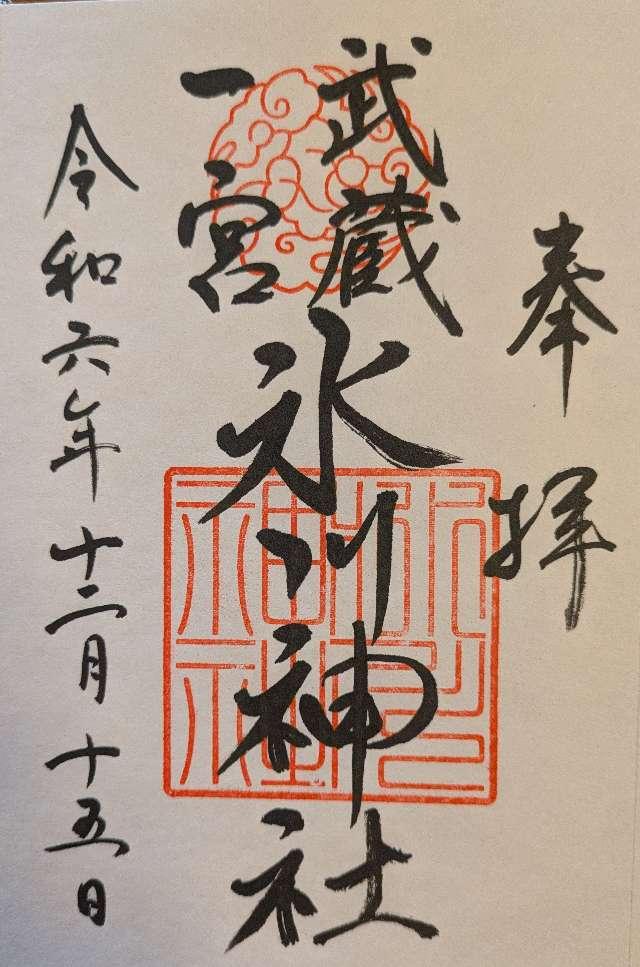 奉拝
武蔵
一宮
氷川神社
令和六年十二月十五日